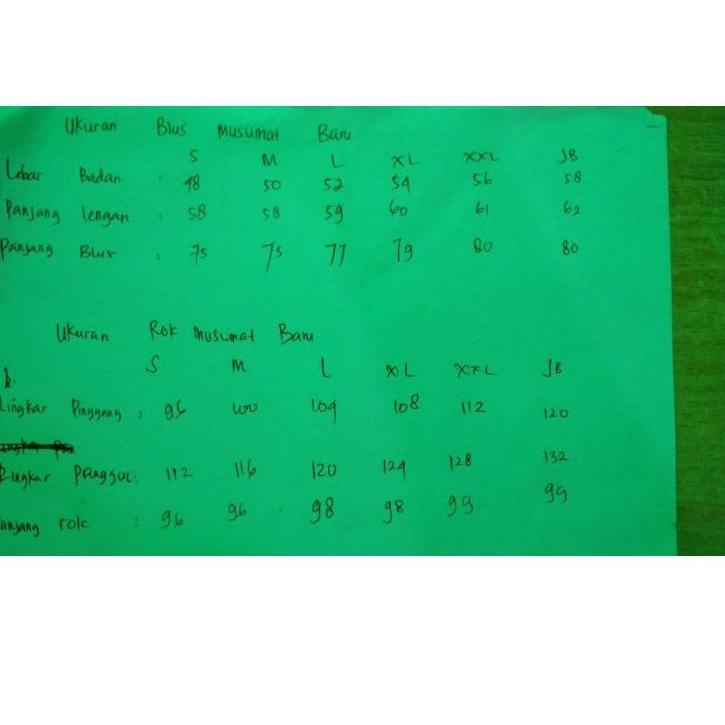 Ukuran Blus Musumat Baru
S M L XL XXL JB
Lebar Badan : 48 50 52 54 56 58
Panjang lengan : 58 58 59 60 61 62
Panjang Blus : 75 75 77 79 80 80
Ukuran Rok Musumat Baru
S M L XL XXL JB
Lingkar Pinggang : 96 100 104 108 112 120
Lingkar Panggul : 112 116 120 124 128 132
Panjang rok : 96 96 98 98 99 99